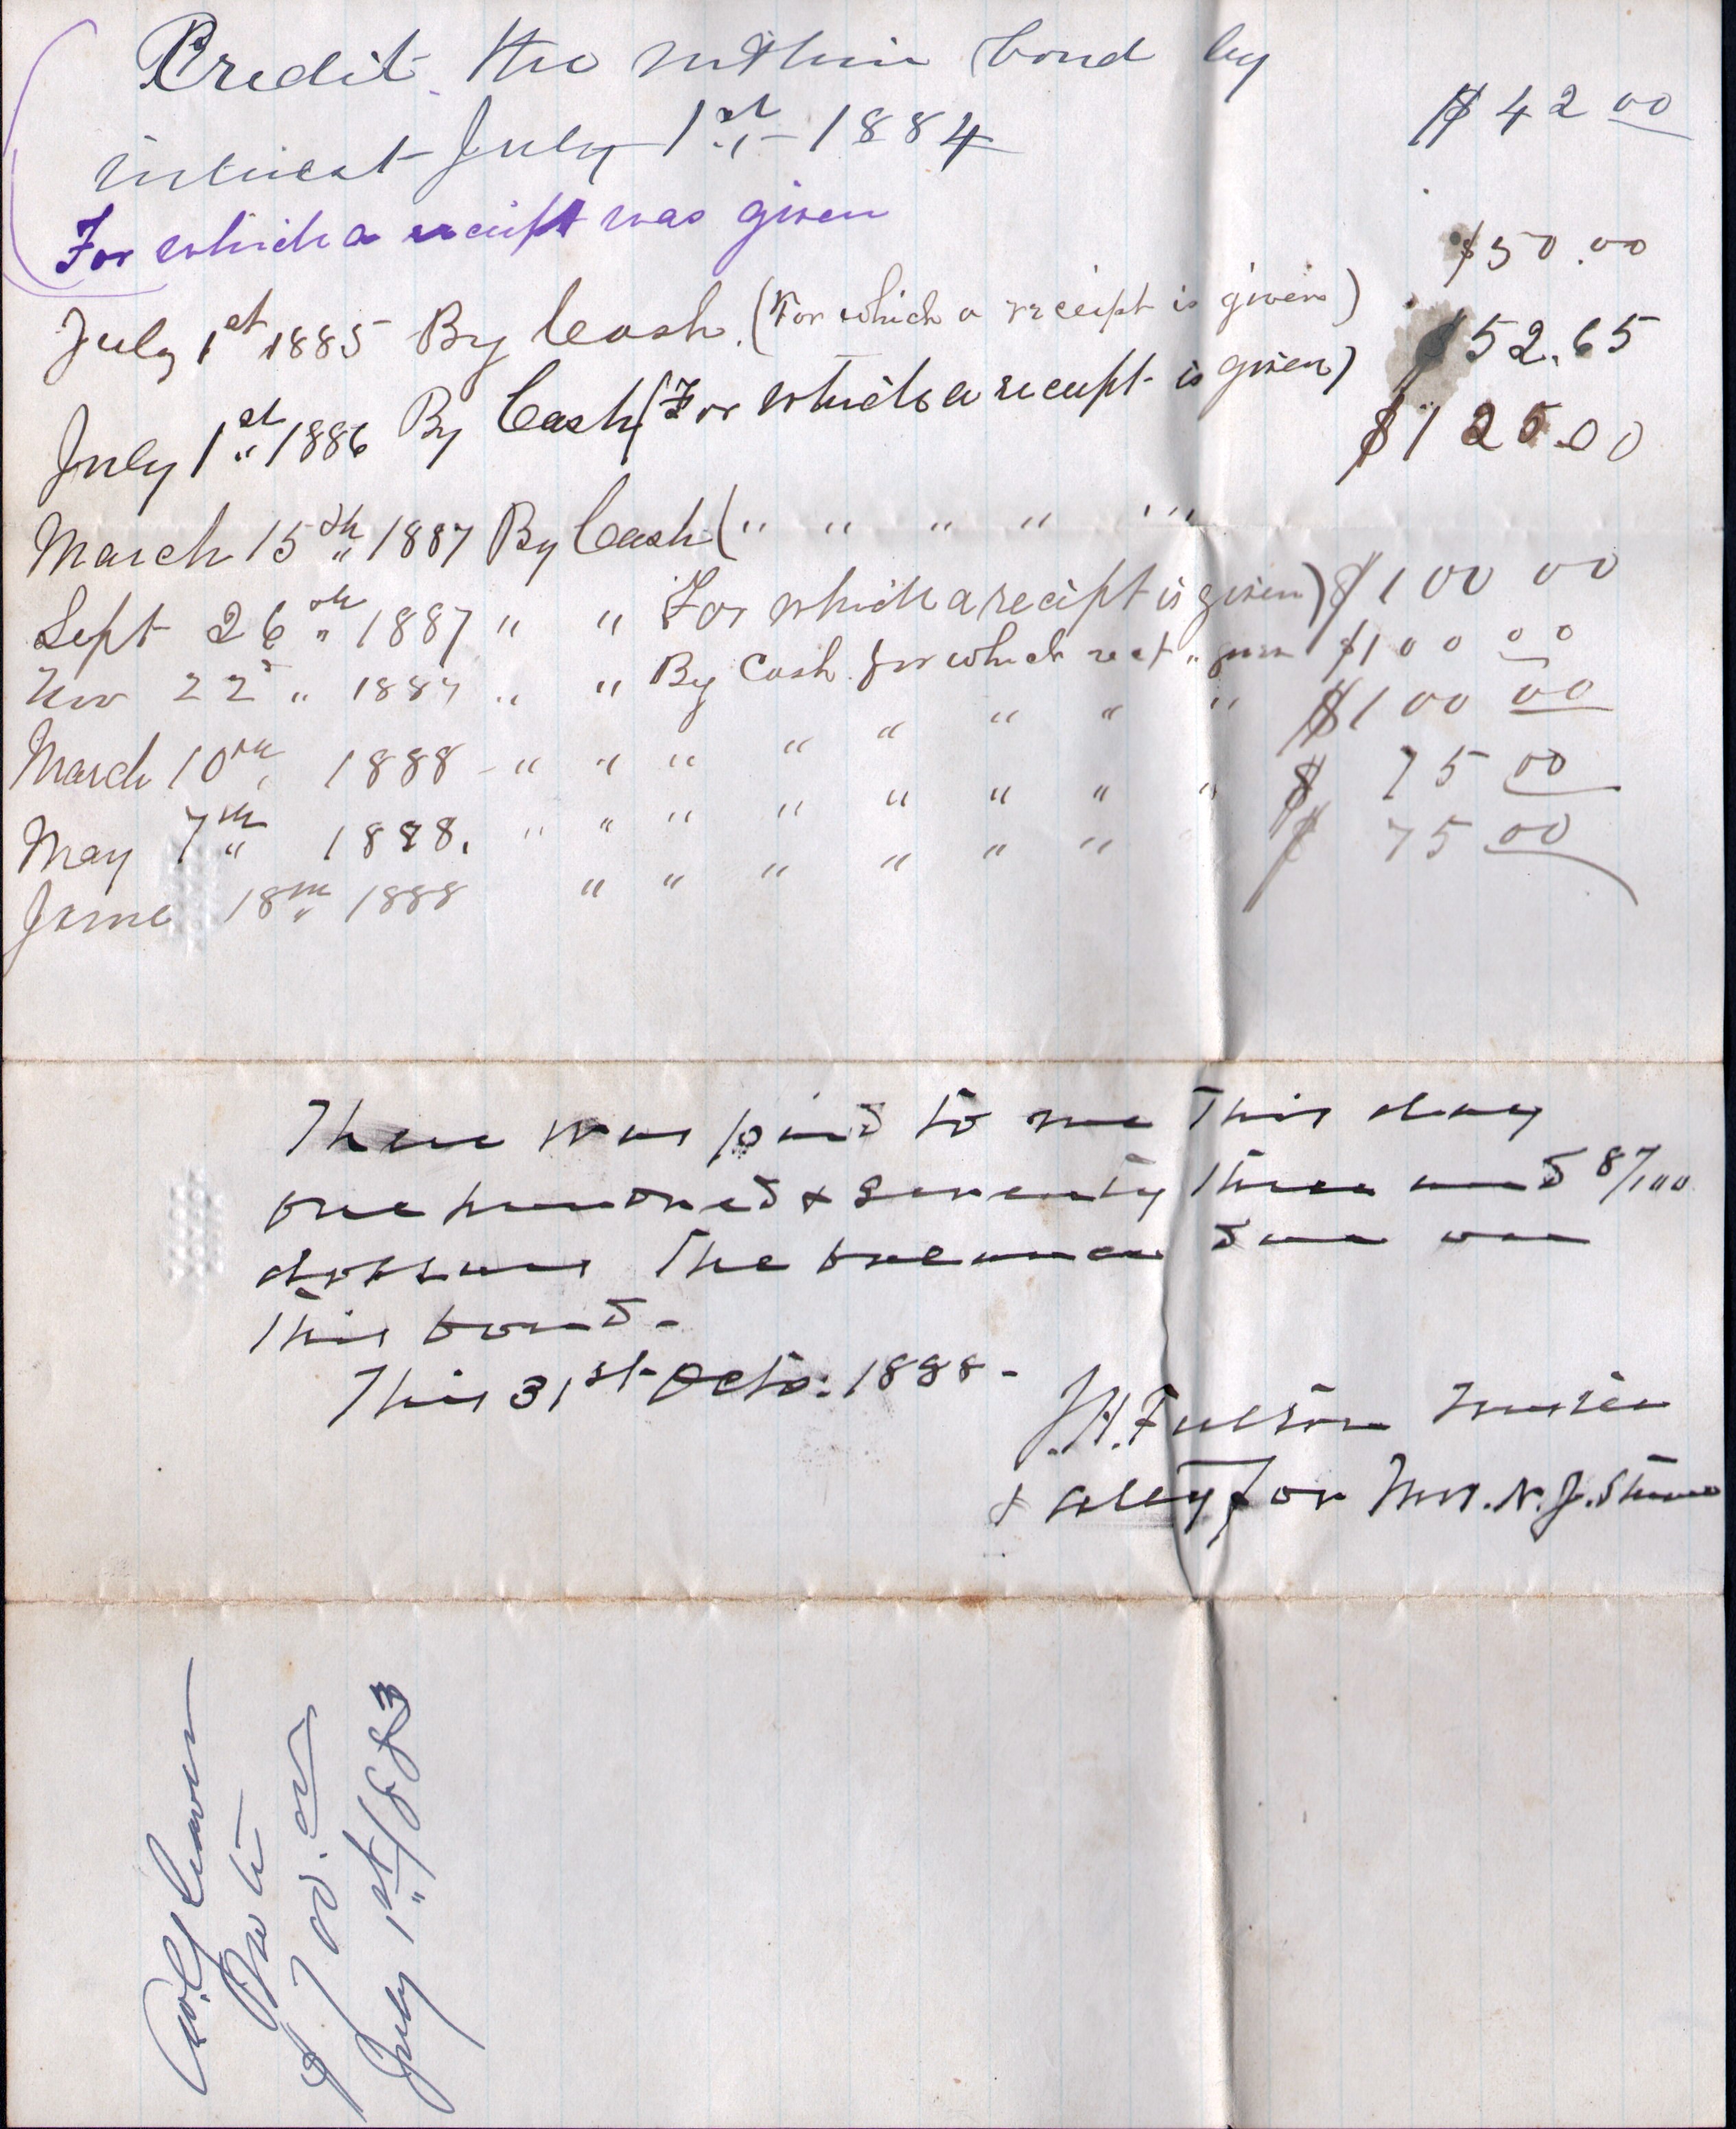 Credit the within bond by
interest July 1st 1884 $42 00
For which a receipt was given
July 1st 1885 By Cash. (For which a receipt is given) $50.00
July 1st 1886 By Cash (For which a receipt is given) $52.65
March 15th 1887 By Cash ( " " " " " " $125.00
Sept 26th 1887 " " For which a receipt is given) $100 00
Nov 22 " 1887 " " By Cash for which rect " given $100 00
March 10th 1888 - " " " " " " " " $100 00
May 7th 1888. " " " " " " " " $ 75 00
June 18th 1888 " " " " " " $ 75 00
There was paid to me this day
one hundred & seventy three and 87/100
dollars the balance due on
this bond.
This 31st Octo: 1888 -
J.H. Fulton Trustee
& atty for Mrs. N. J.
Note
$700.00
July 1st 1883